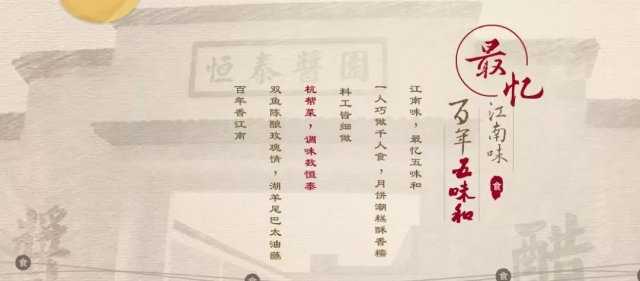 最忆
江南味
百年五味和
食
江南味，最忆五味和
一人巧做千人食，月饼潮糕酥香糯
料工皆细做
杭帮菜，调味数恒泰
双鱼陈酿玫瑰情，湖羊尾巴太油蘸
百年香江南
恒泰醬園
醬
醋
食
食
食